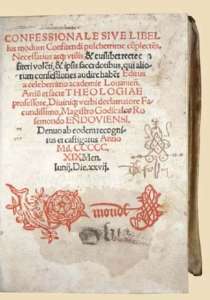 CONFESSIONALE SIVE LIBEL
lus modum Confitendi pulcherrime cōplectēs,
Necessarius atqȝ vtilis & cūctis qui recte con
fiteri volēt, & ipsis sacerdotibus, qui alio
rum confessiones audire habēt Editus
a celeberrimo academię Louanień.
Artiū et sacrę THEOLOGIAE
professore, Diuiniqȝ verbi declamatore Fa
cundissimo, Magistro Godscalco Ro
semondo ENDOVIENSI.
Denuo ab eodem recogni
tus et castigatus Anno
Md. CCCCC.
XIX Men.
Iunij. Die. xxvij.
mondt